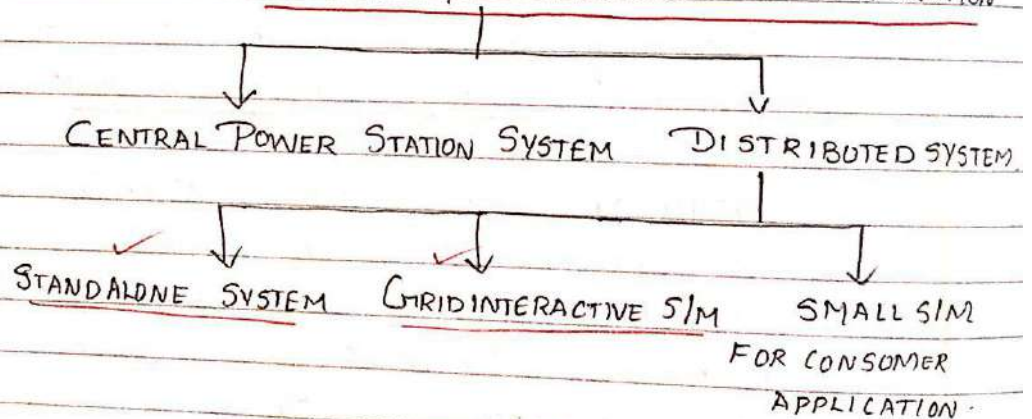 CENTRAL POWER STATION SYSTEM DISTRIBUTED SYSTEM.
STANDALONE SYSTEM GRIDINTERACTIVE S/M SMALL S/M
FOR CONSUMER
APPLICATION.